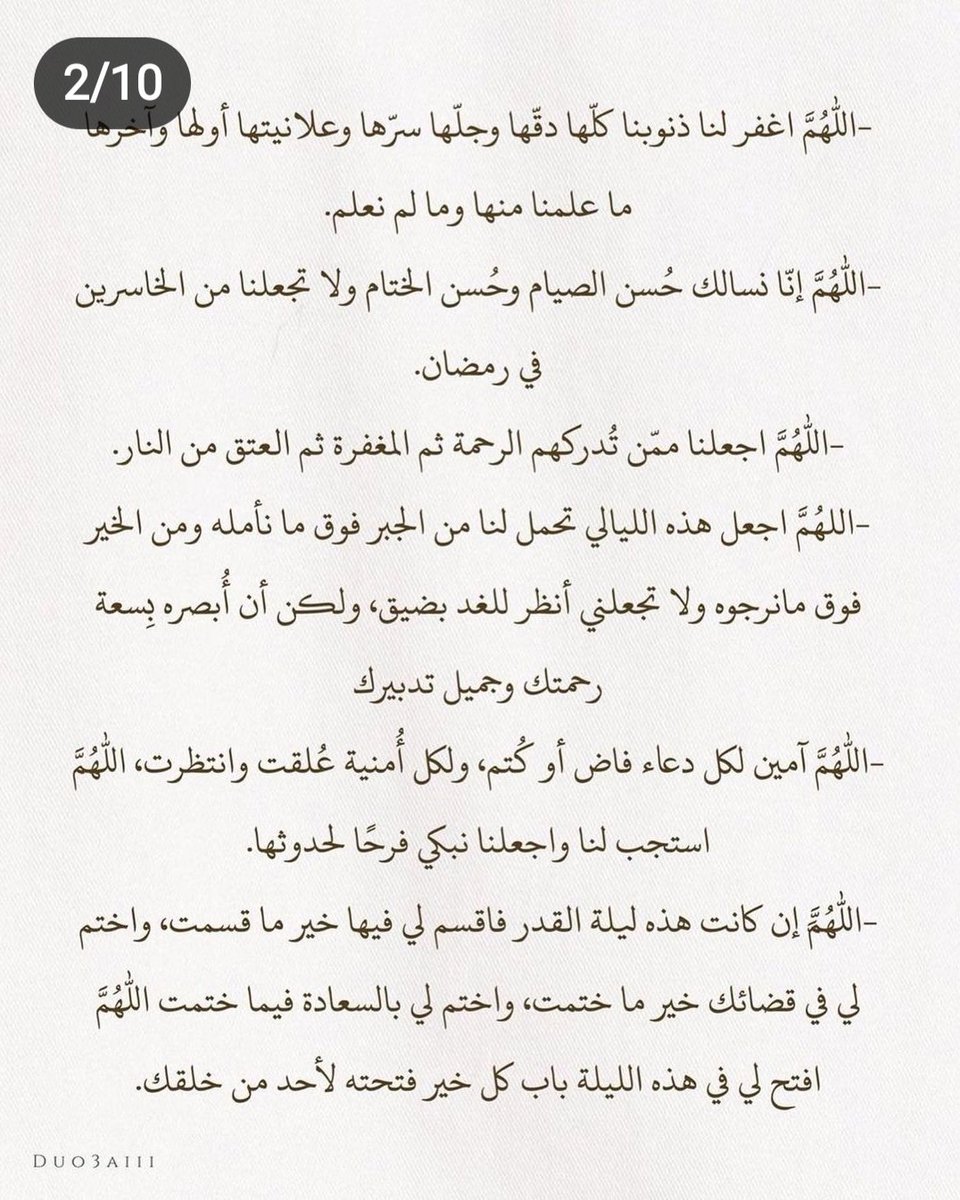 2/10
-اللّٰهُمَّ اغفر لنا ذنوبنا كلّها دقّها وجلّها سرّها وعلانيتها أولها وآخرها
ما علمنا منها وما لم نعلم.
-اللّٰهُمَّ إنّا نسالك حُسن الصيام وحُسن الختام ولا تجعلنا من الخاسرين
في رمضان.
-اللّٰهُمَّ اجعلنا ممّن تُدركهم الرحمة ثم المغفرة ثم العتق من النار.
-اللهُمَّ اجعل هذه الليالي تحمل لنا من الجبر فوق ما نأمله ومن الخير
فوق مانرجوه ولا تجعلني أنظر للغد بضيق، ولكن أن أُبصره بِسعة
رحمتك وجميل تدبيرك
-اللّٰهُمَّ آمين لكل دعاء فاض أو كُتم، ولكل أُمنية عُلقت وانتظرت، اللّٰهُمَّ
استجب لنا واجعلنا نبكي فرحًا لحدوثها.
-اللّٰهُمَّ إن كانت هذه ليلة القدر فاقسم لي فيها خير ما قسمت، واختم
لي في قضائك خير ما ختمت، واختم لي بالسعادة فيما ختمت اللّٰهُمَّ
افتح لي في هذه الليلة باب كل خير فتحته لأحد من خلقك.
Duo3aiii